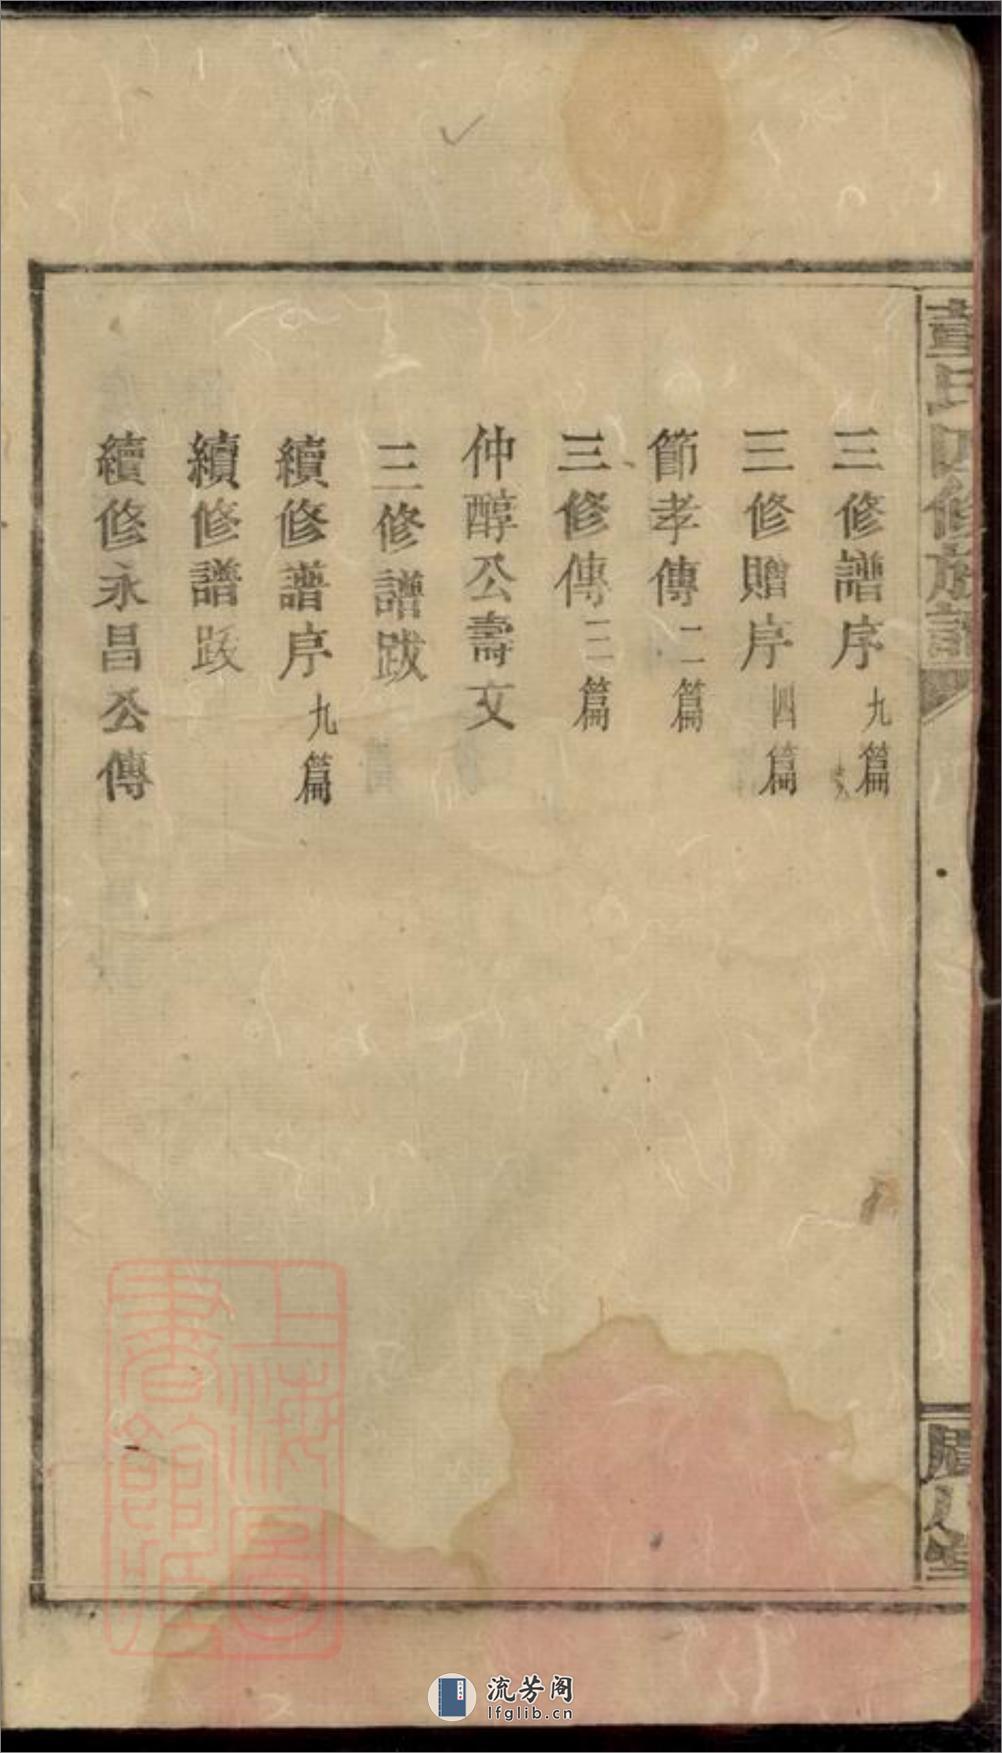 三修譜序九篇
三修贈序四篇
節孝傳二篇
三修傳三篇
仲醇公壽文
三修譜跋
續修譜序九篇
續修譜跋
續修永昌公傳
氏四修族譜
堂
上海圖
書館藏
流芳阁
lfglib.cn